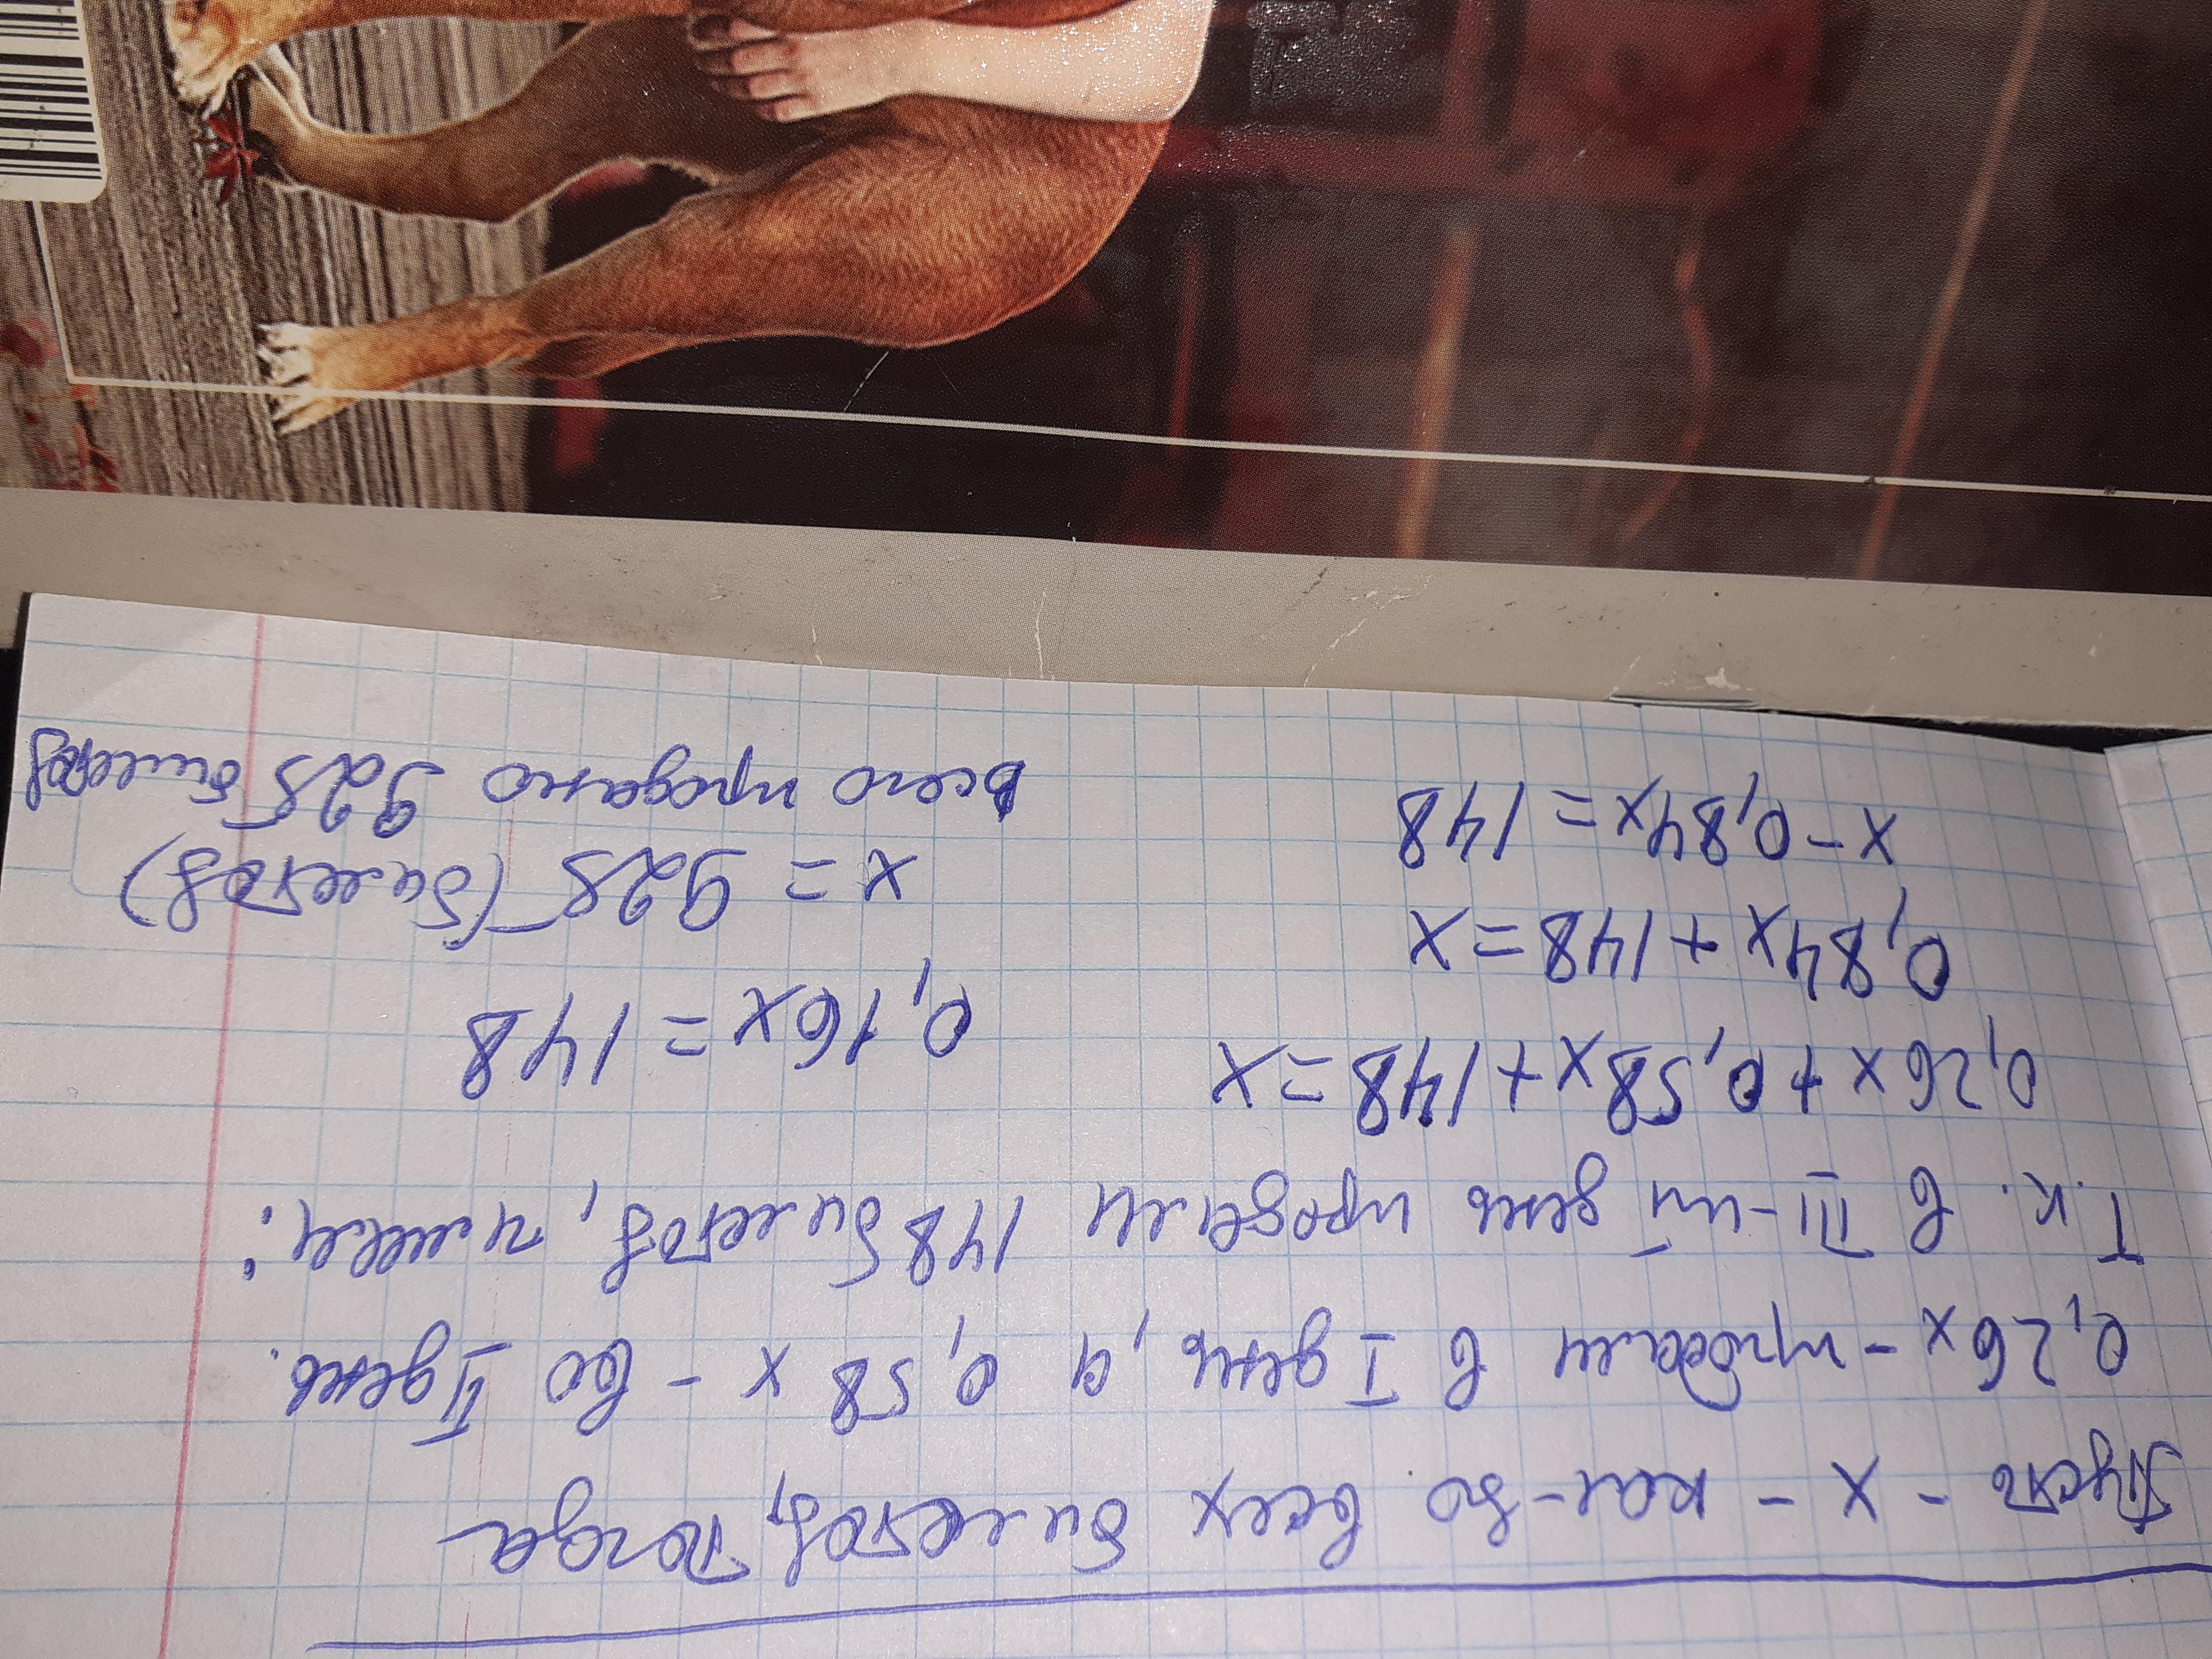 Пусть - x - кол-во всех билетов, тогда
0,26x - продали в I день, а 0,58x - во II день.
Т.к. в III-ий день продали 148 билетов, имеем:
0,26x + 0,58x + 148 = x
0,84x + 148 = x
x - 0,84x = 148
0,16x = 148
x = 925 (билетов)
Всего продано 925 билетов